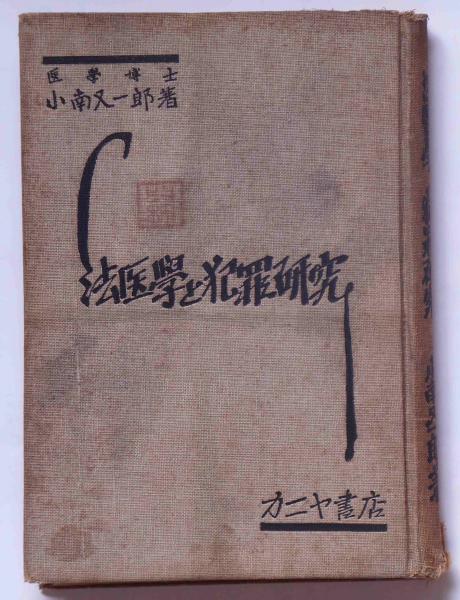 医學博士
小南又一郎著
法医學と犯罪研究
カニヤ書店